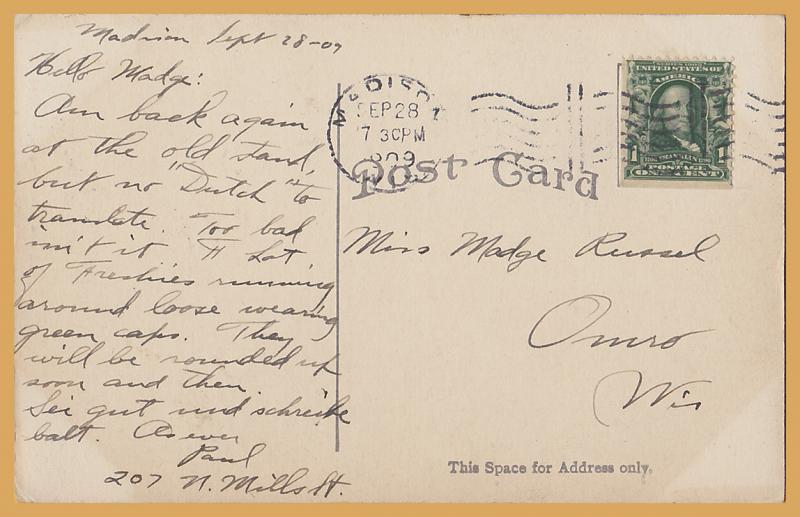 Madison Sept 28-09
Hello Madge:
Am back again
at the old stand,
but no "Dutch" to
translate. Too bad
isn't it A Lot
of Freshies running
around loose wearing
green caps. They
will be rounded up
soon and then.
Sei gut und schreibe
balt. As ever
Paul
207 N. Mills St.
MADISON
SEP 28
7 30PM
1909
WIS.
SERIES 1902
UNITED STATES OF
AMERICA
1 FRANKLIN 1
POSTAGE
ONE CENT
Post Card
Miss Madge Russel
Omro
Wis
This Space for Address only.